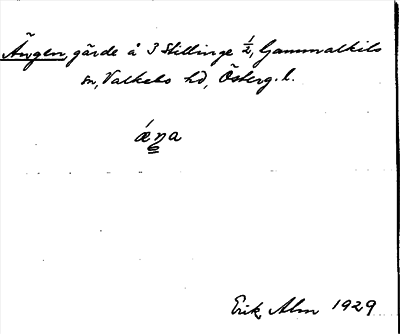 Ängen, gärde å 3 Stillinge 1/2, Gammalkils
sn, Valkebo hd, Österg. l.
ǽŋa
Erik Alm 1929